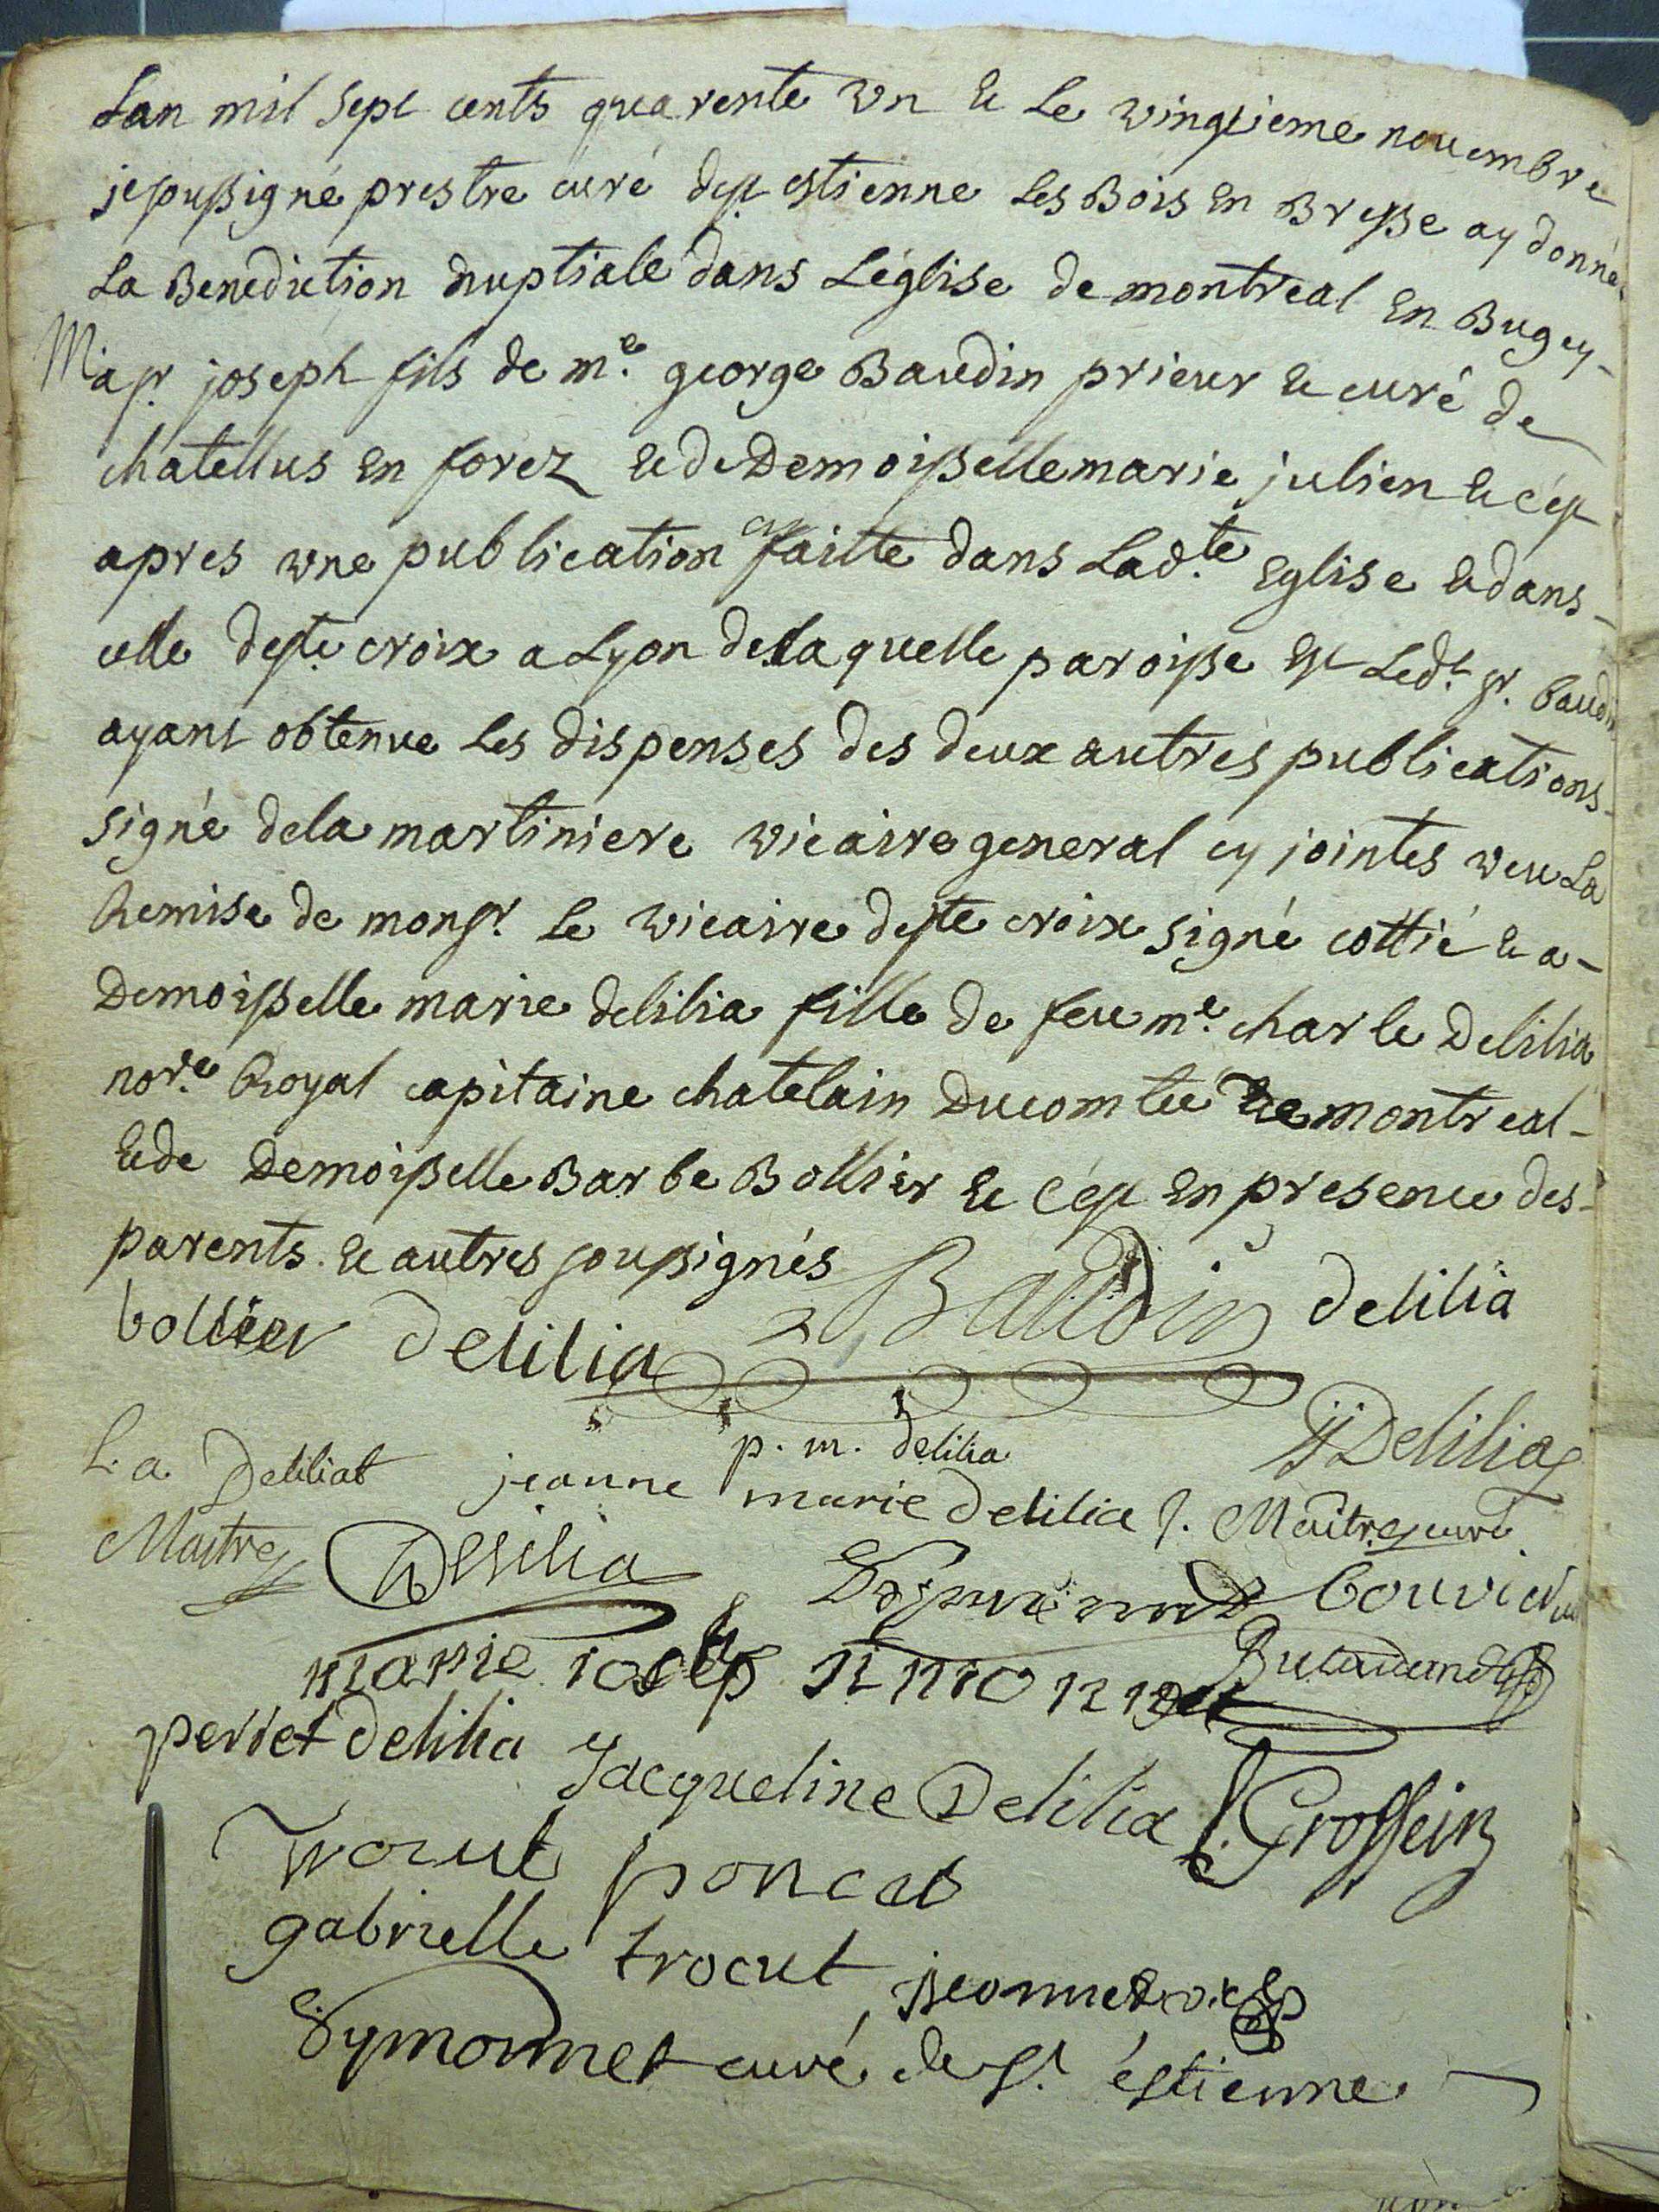 Lan mil sept cents quarente vn & Le vingtieme nouembre
je soussigné prestre curé de st estienne Les Bois en Bresse ay donné
La Benediction nuptiale dans L'église de montreal en Bugey-
A sr. joseph fils de me. george Baudin prieur & curé de
chatellus en forez & de Demoisselle marie julien & c'est
apres vne publication faitte dans Ladte. Eglise & dans-
celle de ste. croix a Lyon de laquelle paroisse est Ledt. sr. baudin
ayant obtenue Les dispenses des deux autres publications-
signé de la martiniere vicaire general cy jointes veu La
Remise de monsr. Le vicaire de ste croix signé cottié & a-
Demoisselle marie delilia fille de feu me. charle Delilia
nore. Royal capitaine chatelain Du comtée de montreal-
& de Demoisselle Barbe Bollier & c'est en presence des-
parents. & autres soussignés
bollier Delilia Baudin delilia
p. m. delilia JJ Delilia
L. a. Deliliat jeanne marie Delilia J. Maitre curé
Maitre Delilia Bouvier
marie iosep
perret Delilia Jacqueline Delilia Grossein
Trocut poncet
gabrielle trocut
Symonnet curé de st. éstienne